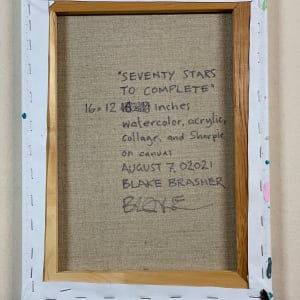 "SEVENTY STARS
TO COMPLETE"
16 × 12 inches
watercolor, acrylic,
collage, and Sharpie
on canvas
AUGUST 7, 02021
BLAKE BRASHER
BLAKE